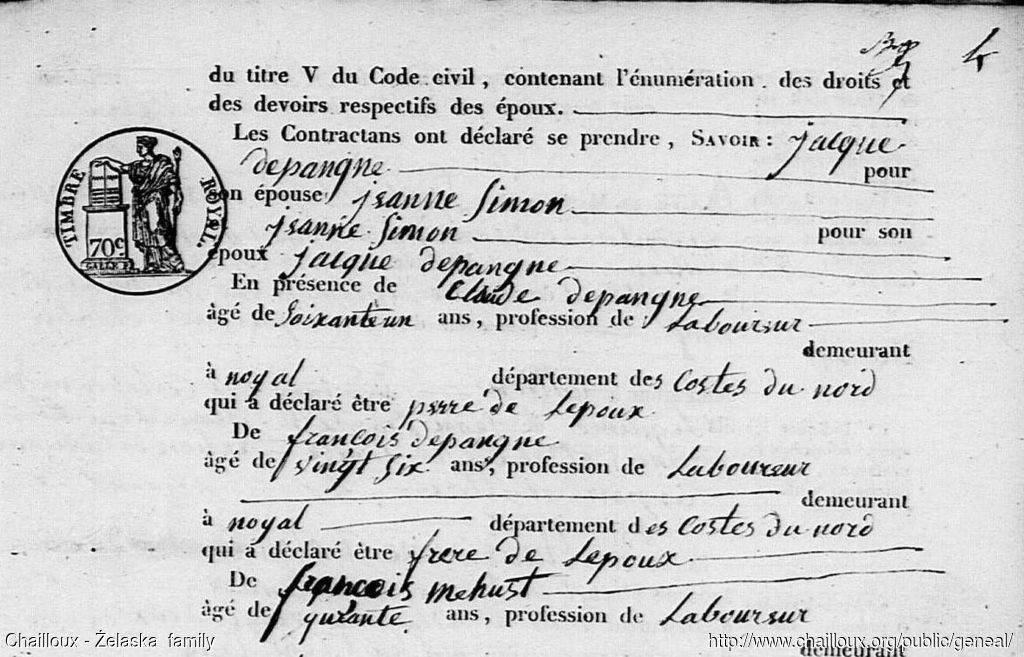 4
du titre V du Code civil, contenant l'énumération des droits et
des devoirs respectifs des époux.
Les Contractans ont déclaré se prendre, SAVOIR : jacque
depangne pour
son épouse jeanne Simon
jeanne Simon pour son
époux jacque depangne
En présence de Claude depangne
âgé de Soixante un ans, profession de Laboureur
demeurant
à noyal département des Costes du nord
qui a déclaré être perre de Lepoux
De françois depangne
âgé de vingt Six ans, profession de Laboureur
demeurant
à noyal département des Costes du nord
qui a déclaré être frere de Lepoux
De françois mehust
âgé de qurante ans, profession de Laboureur
demeurant
TIMBRE ROYAL.
70c
Chailloux - Želaska family
http://www.chailloux.org/public/geneal/